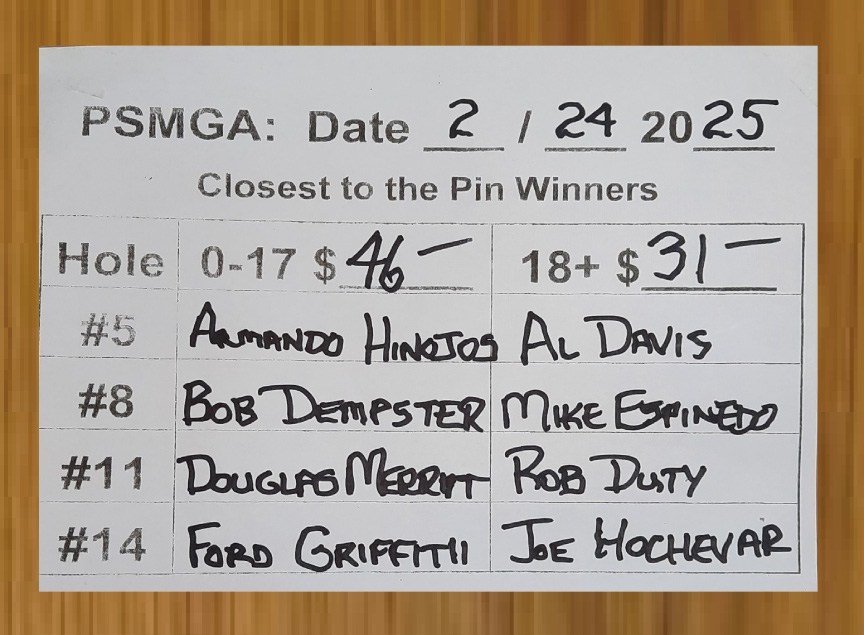 PSMGA: Date 2 / 24 2025
Closest to the Pin Winners
Hole 0-17 $ 46— 18+ $ 31—
#5 ARMANDO HINOJOS AL DAVIS
#8 BOB DEMPSTER MIKE ESPINEDO
#11 DOUGLAS MERRITT ROB DUTY
#14 FORD GRIFFITH JOE HOCHEVAR